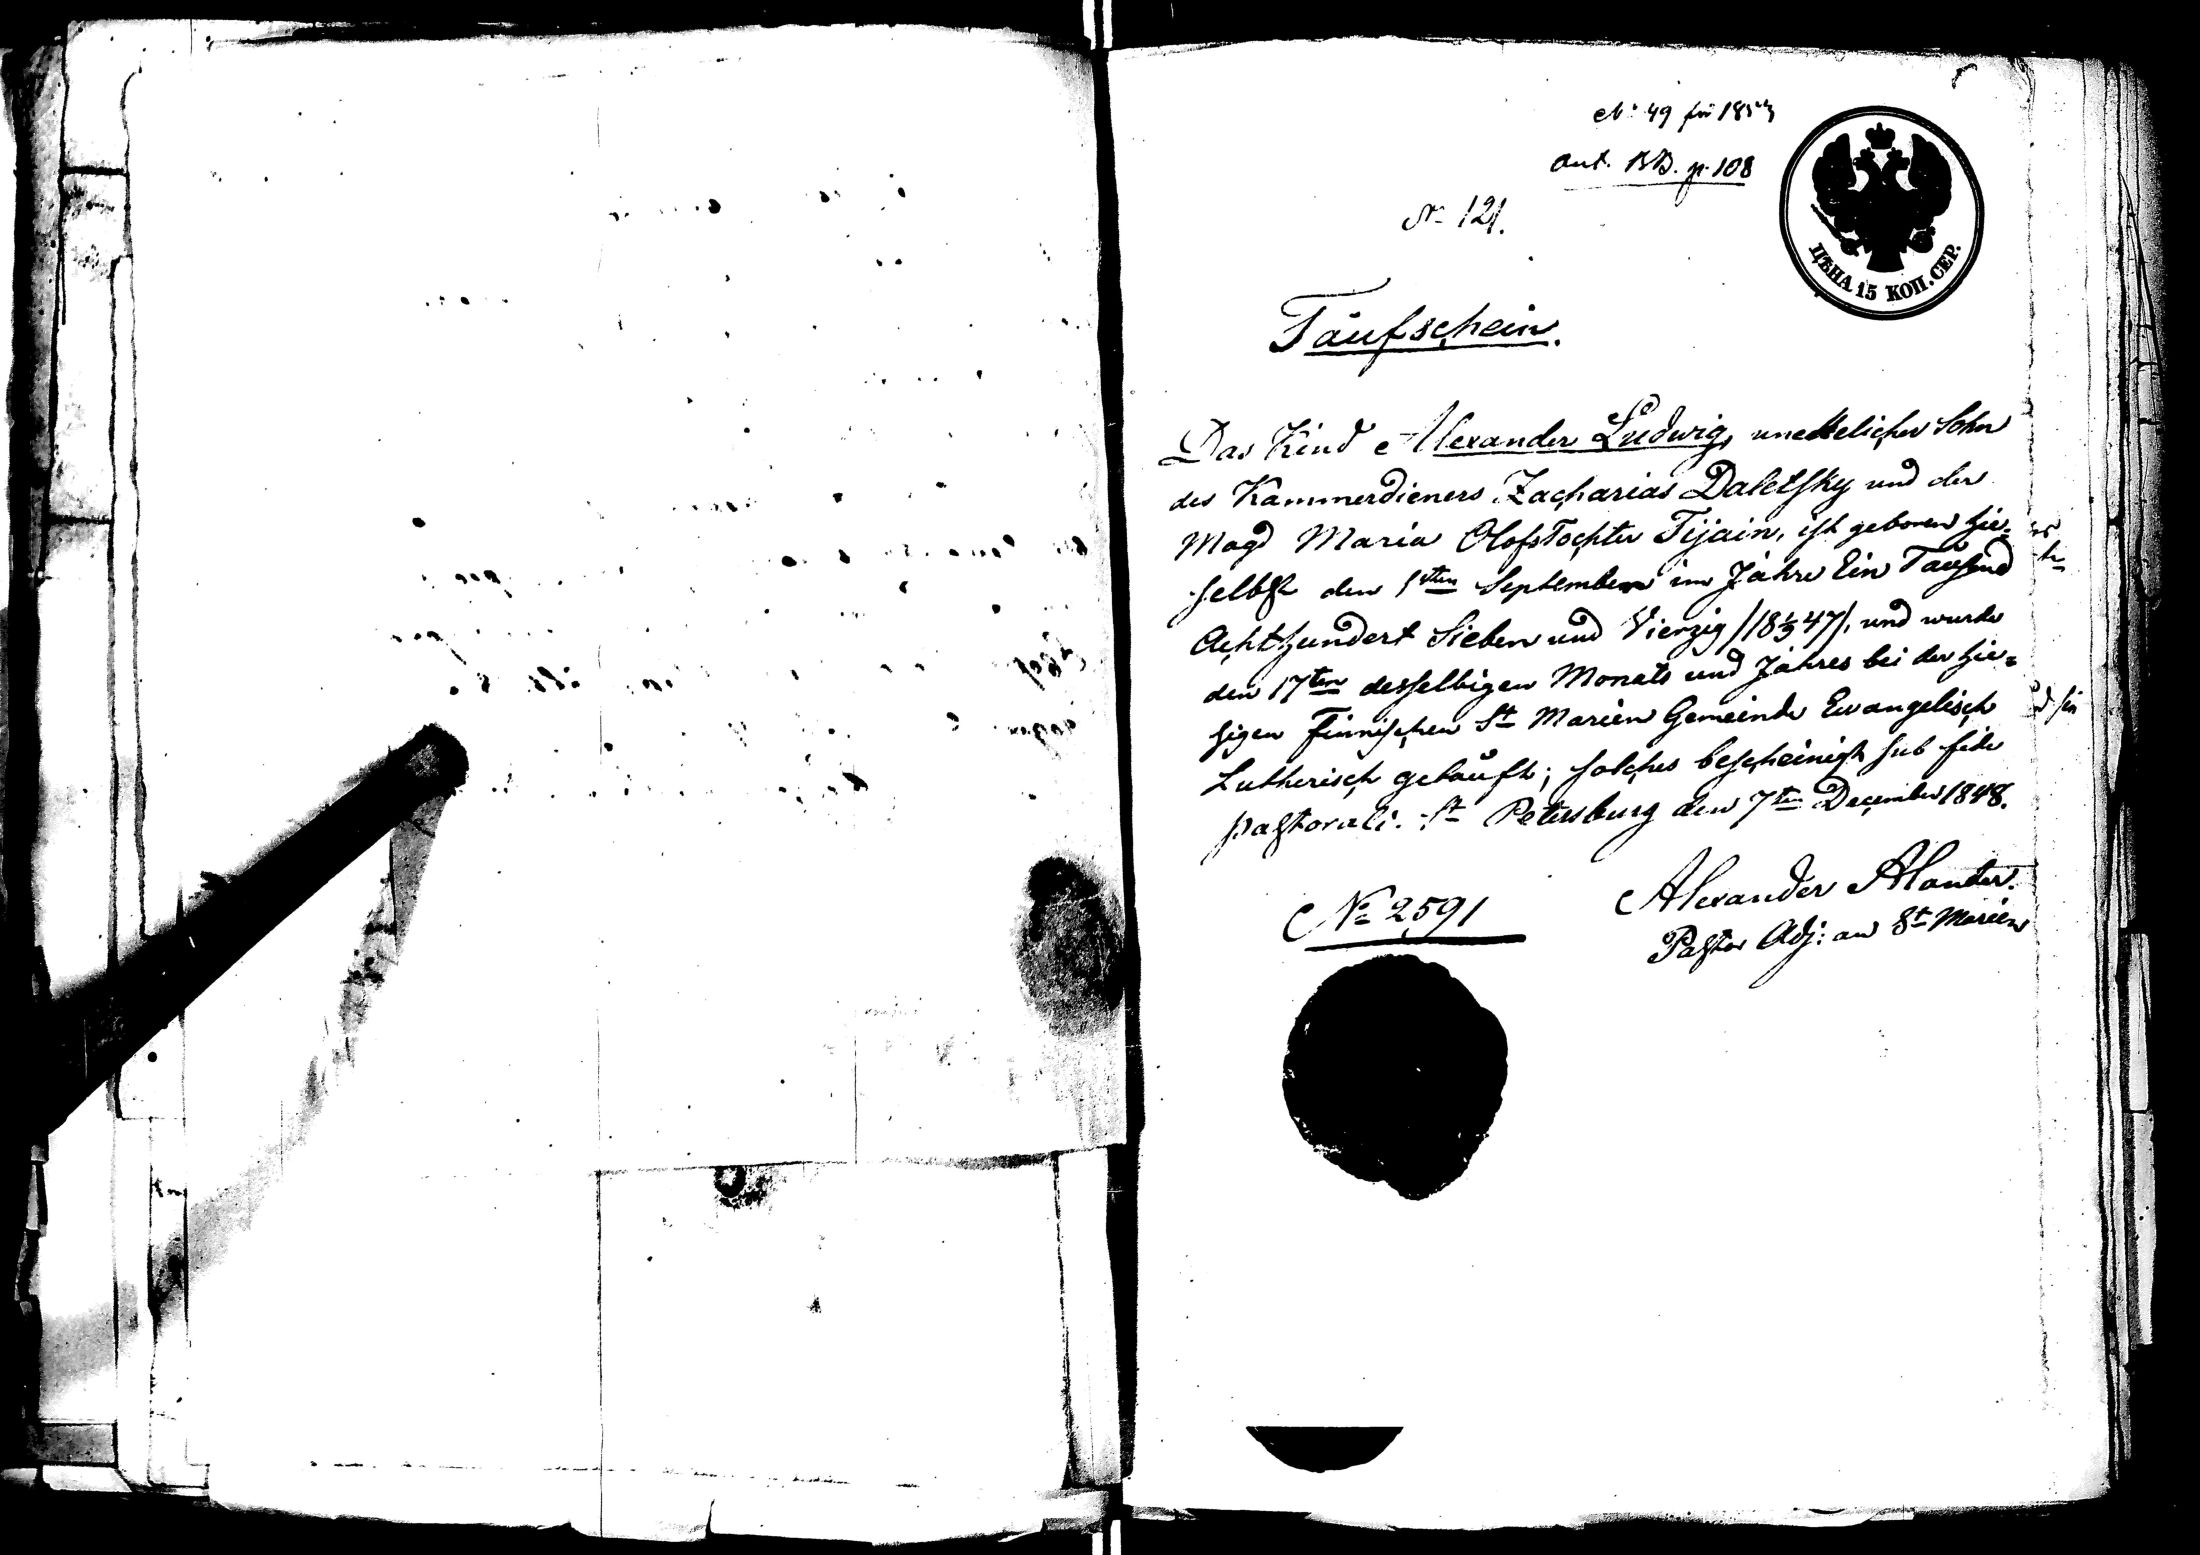 No 49 für 1853
Aut. BB. p. 108
No 121.
ЦѢНА 15 КОП. СЕР.
Taufschein.
Das Kind Alexander Ludwig, unehelicher Sohn
des Kammerdieners Zacharias Daletsky und der
Magd Maria Olofstochter Tijain, ist geboren hie=
selbst den 1sten September im Jahre Ein Tausend
Achthundert Sieben und Vierzig /18 1/9 47/, und wurde
den 17ten desselbigen Monats und Jahres bei der hie=
sigen Finnischen St Marien Gemeinde Evangelisch
Lutherisch getauft; solches bescheinigt sub fide
pastorali. St Petersburg den 7ten December 1848.
Alexander Alander.
Pastor Adj: an St Marien
No 2591